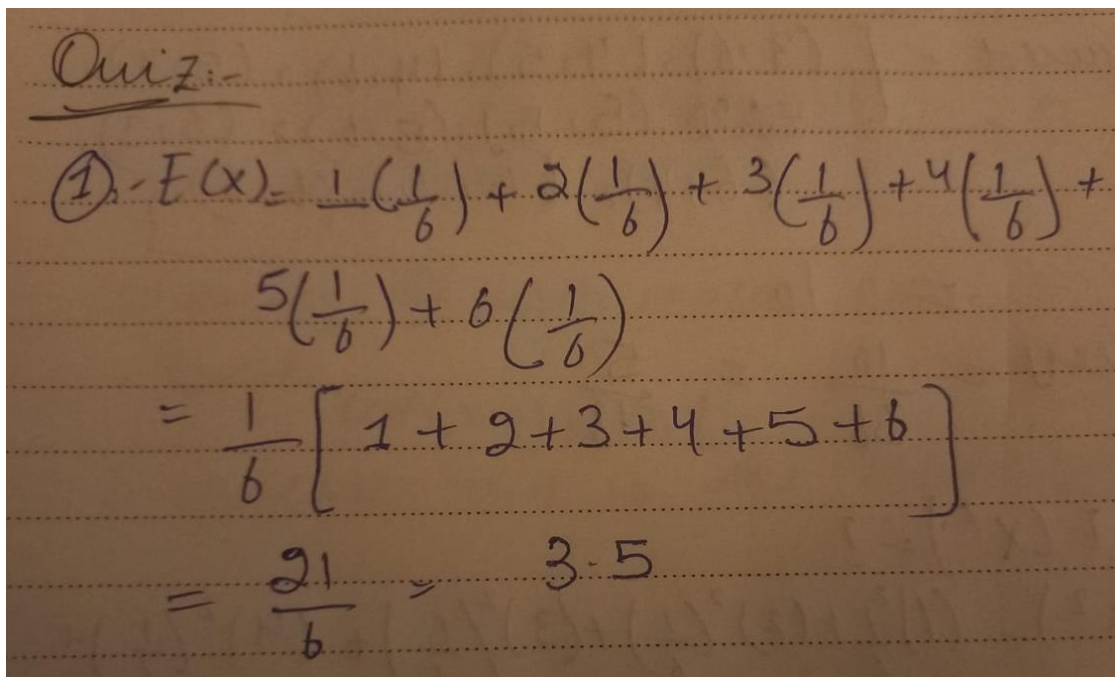 Quiz:-
①.- E(X) = 1(1/6) + 2(1/6) + 3(1/6) + 4(1/6) +
5(1/6) + 6(1/6)
= 1/6 [1 + 2 + 3 + 4 + 5 + 6]
= 21/6 = 3.5